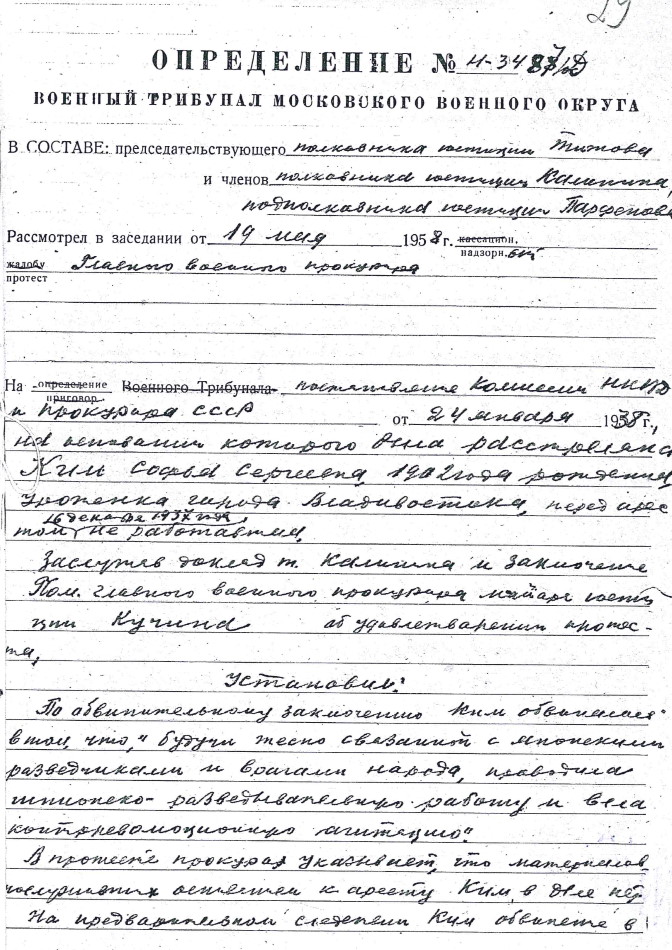 29
ОПРЕДЕЛЕНИЕ № Н-3487/Д
ВОЕННЫЙ ТРИБУНАЛ МОСКОВСКОГО ВОЕННОГО ОКРУГА
В СОСТАВЕ: председательствующего полковника юстиции Титова
и членов полковника юстиции Калинина,
подполковника юстиции Парфенова
Рассмотрел в заседании от 19 мая 1958 г. кассацион.
надзорн. ый
жалобу Главного военного прокурора
протест
На определение Военного Трибунала постановление Комиссии НКВД
приговор
и Прокурора СССР от 24 января 1938 г.,
на основании которого была расстреляна
Ким Софья Сергеевна, 1902 года рождения,
уроженка города Владивостока, перед арес
16 декабря 1937 года,
том не работавшая.
Заслушав доклад т. Калинина и заключение
Пом. главного военного прокурора майора юсти
ции Кучина об удовлетворении протес-
та,
Установил:
По обвинительному заключению Ким обвинялась
в том, что, "будучи тесно связанной с японскими
разведчиками и врагами народа, проводила
шпионско-разведывательную работу и вела
контрреволюционную агитацию".
В протесте прокурор указывает, что материалов,
послуживших основанием к аресту Ким, в деле нет.
На предварительном следствии Ким обвинение в